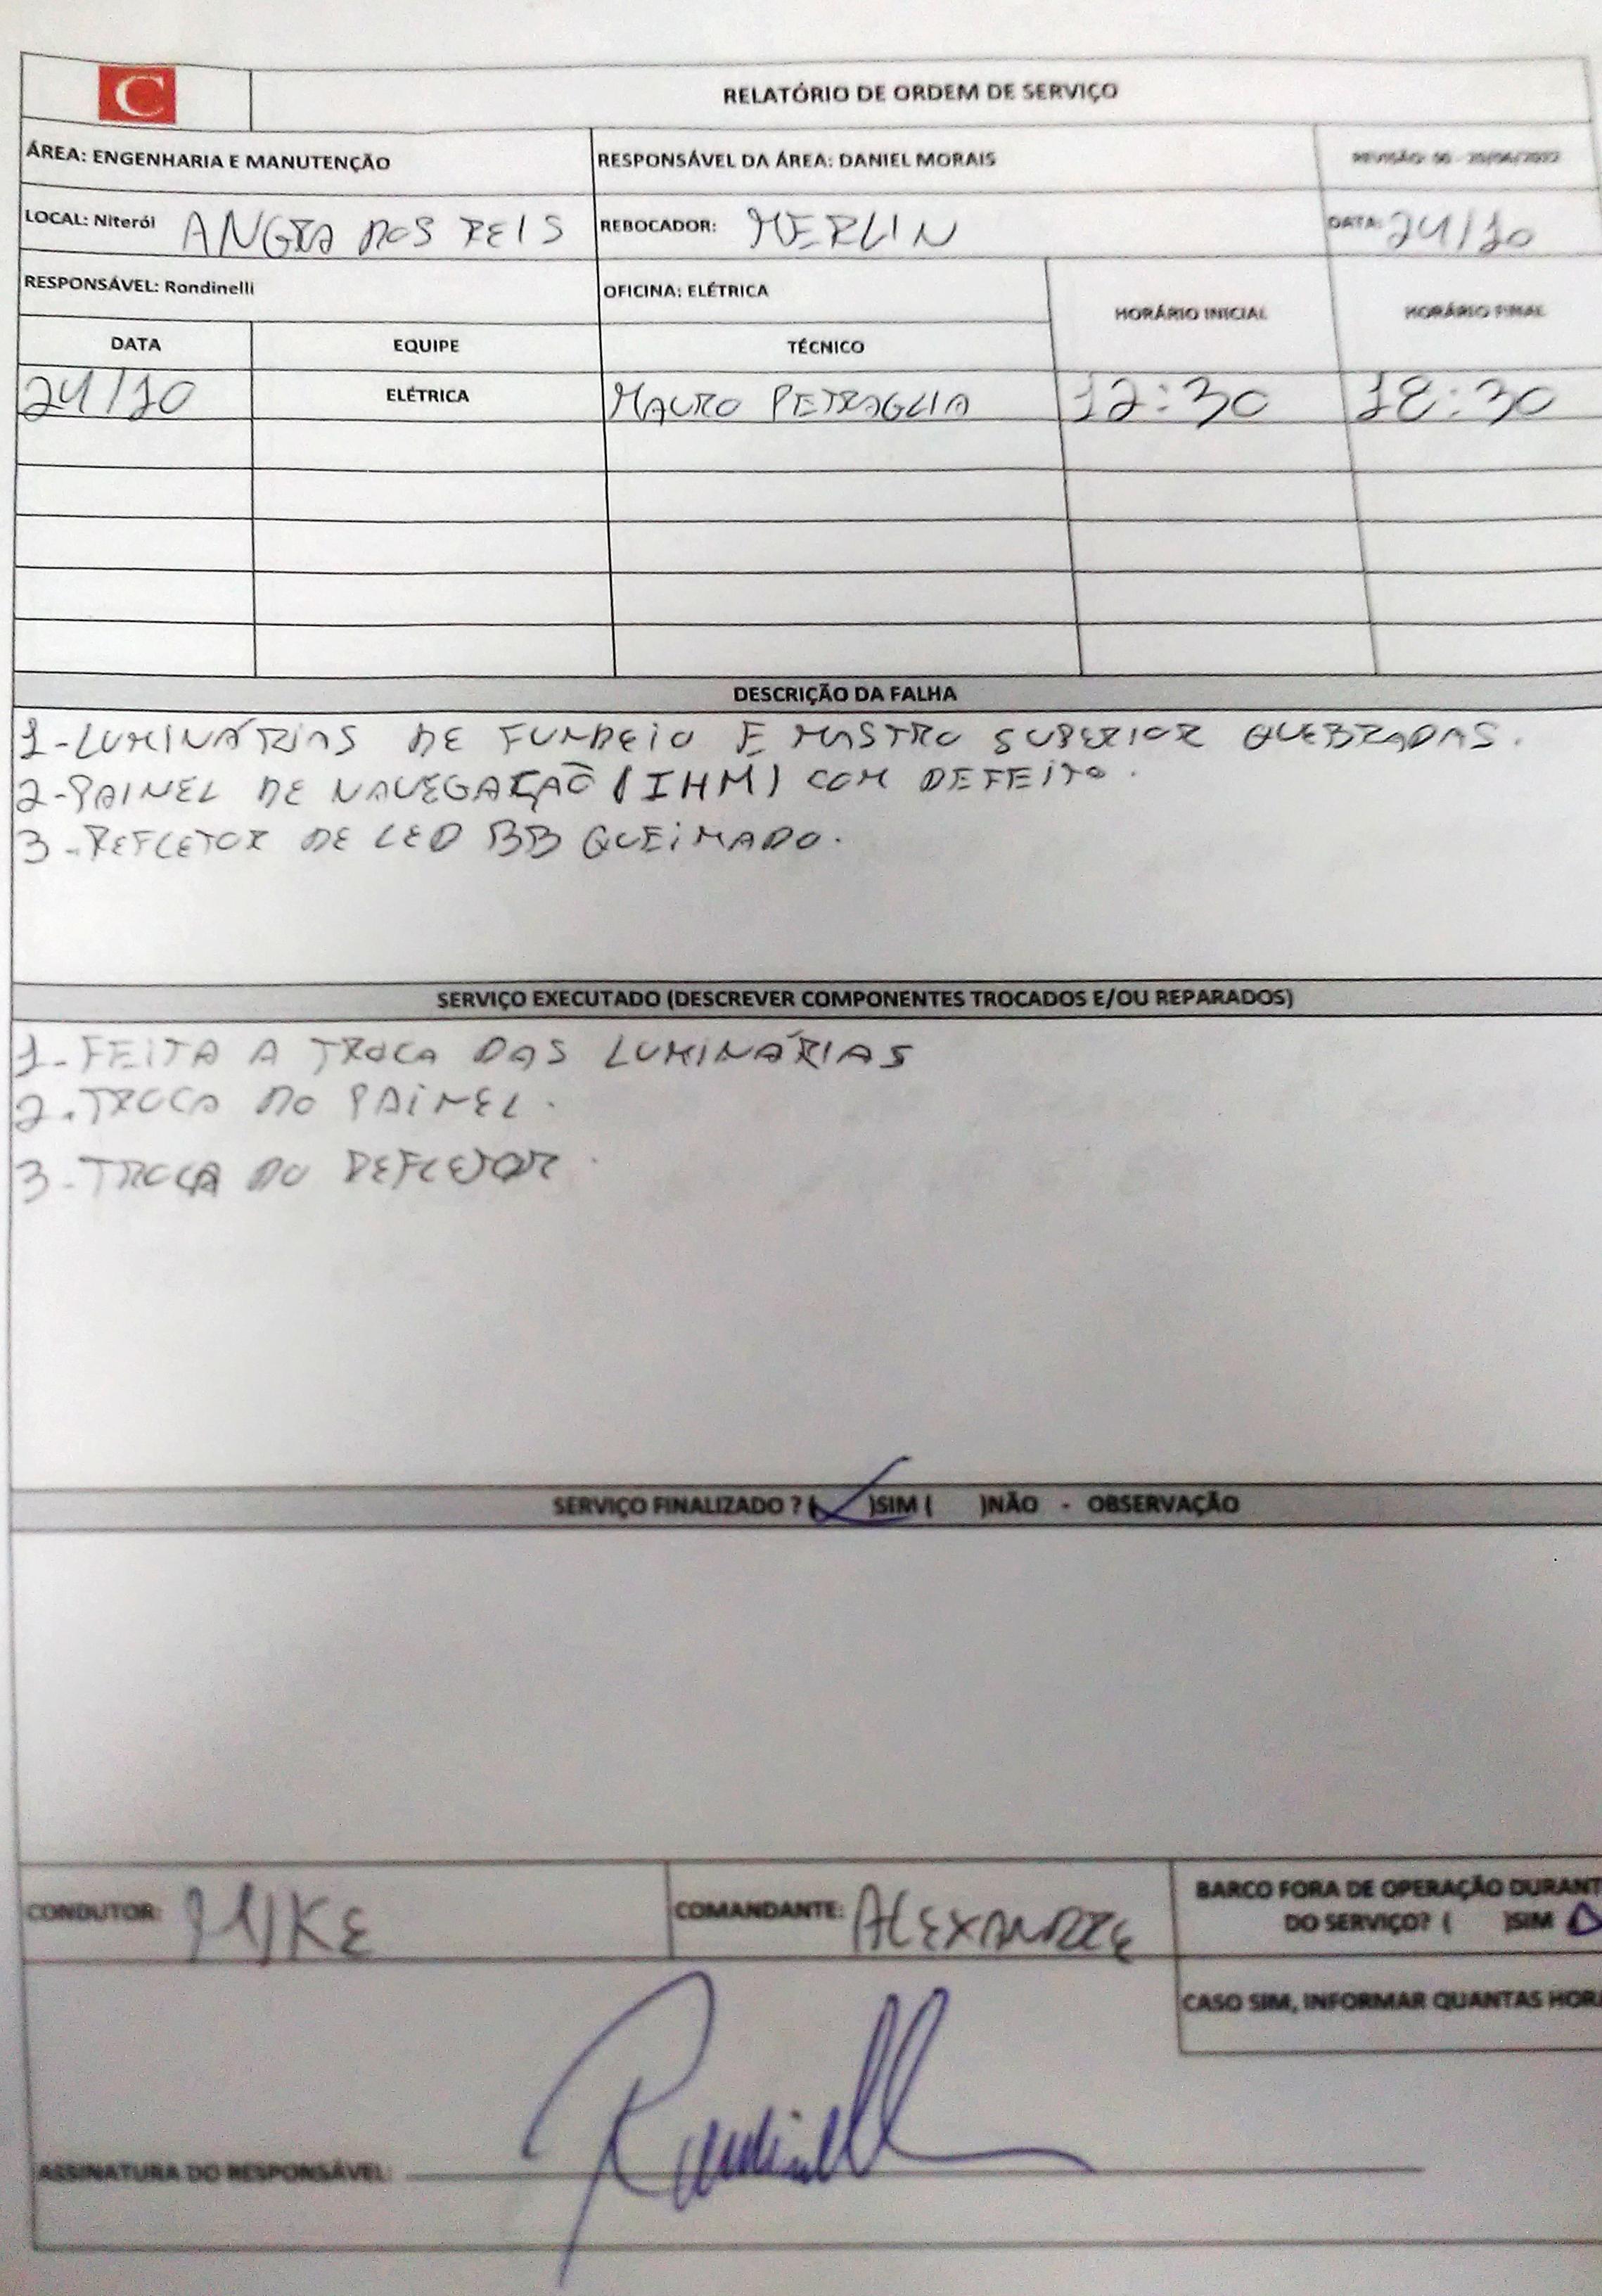 C
RELATÓRIO DE ORDEM DE SERVIÇO
ÁREA: ENGENHARIA E MANUTENÇÃO
RESPONSÁVEL DA ÁREA: DANIEL MORAIS
REVISÃO: 00 - 20/06/2022
LOCAL: Niterói ANGRA DOS REIS
REBOCADOR: MERLIN
DATA: 24/10
RESPONSÁVEL: Rondinelli
OFICINA: ELÉTRICA
HORÁRIO INICIAL
HORÁRIO FINAL
DATA
EQUIPE
TÉCNICO
24/10
ELÉTRICA
MAURO PETRAGLIA
12:30
18:30
DESCRIÇÃO DA FALHA
1-LUMINÁRIAS DE FUNDEIO E MASTRO SUPERIOR QUEBRADAS.
2-PAINEL DE NAVEGAÇÃO (IHM) COM DEFEITO.
3-REFLETOR DE LED BB QUEIMADO.
SERVIÇO EXECUTADO (DESCREVER COMPONENTES TROCADOS E/OU REPARADOS)
1-FEITA A TROCA DAS LUMINÁRIAS
2-TROCA DO PAINEL.
3-TROCA DO REFLETOR.
SERVIÇO FINALIZADO ? (✓)SIM ( )NÃO - OBSERVAÇÃO
CONDUTOR: MIKE
COMANDANTE: ALEXANDRE
BARCO FORA DE OPERAÇÃO DURANT
DO SERVIÇO? ( )SIM
CASO SIM, INFORMAR QUANTAS HORA
ASSINATURA DO RESPONSÁVEL: Rondinelli